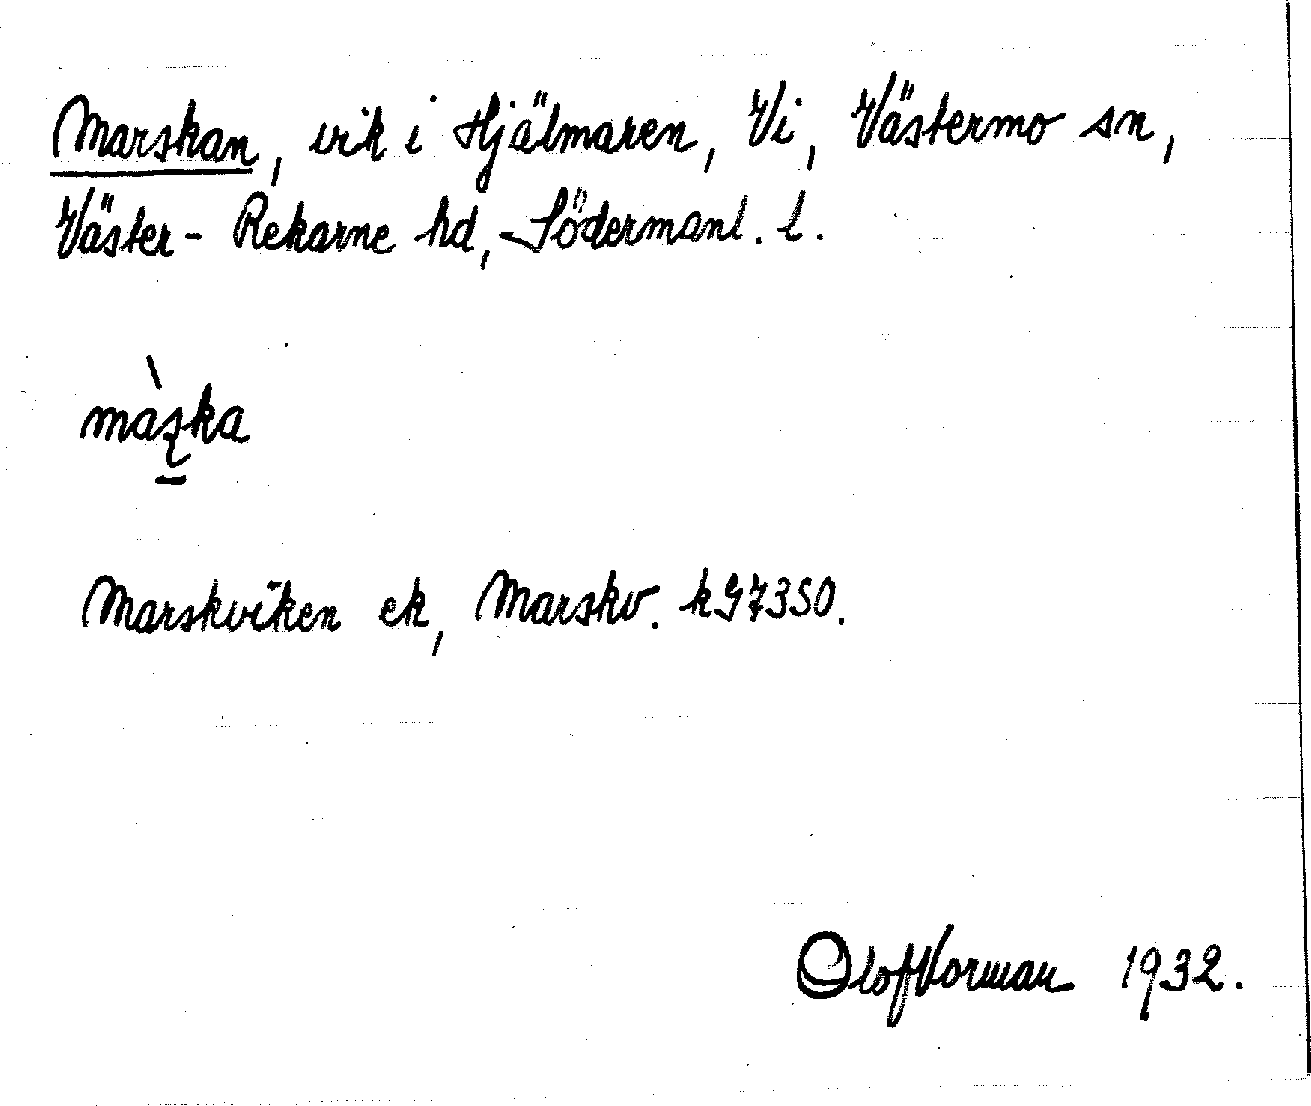 Marskan, vik i Hjälmaren, Vi, Västermo sn,
Väster-Rekarne hd, Södermanl. l.
màʂka
Marskviken ek, Marskv. kG7350.
Olof Vorman 1932.